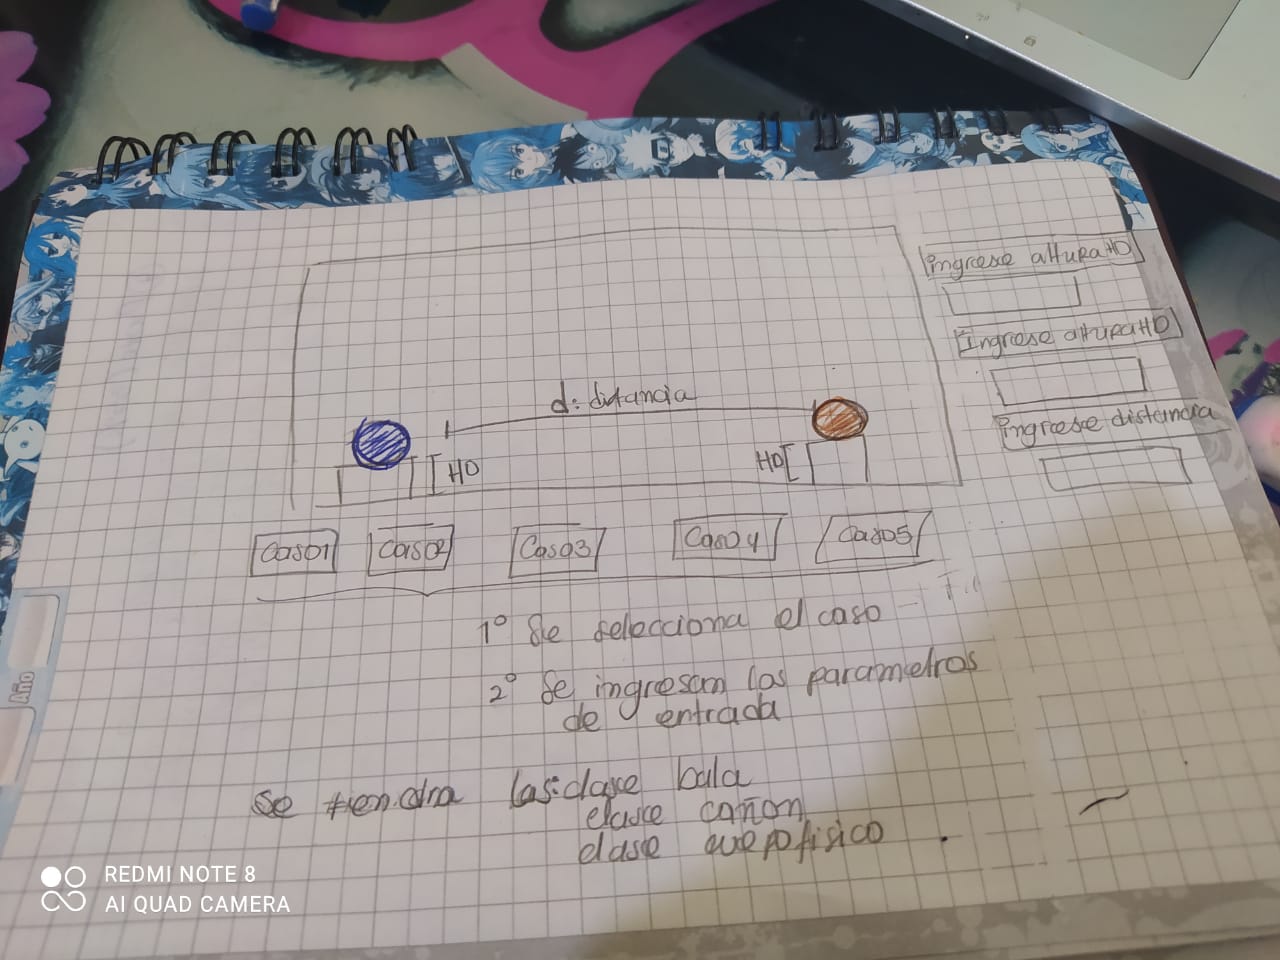 Ingrese altura HO
Ingrese altura HD
Ingrese distancia
d: distancia
HO
HD
Caso1
Caso2
Caso3
Caso4
Caso5
1º Se selecciona el caso
2º Se ingresan los parametros
de entrada
Se tiendra las: clase bala
clase cañon
clase cuerpofisico
Año
REDMI NOTE 8
AI QUAD CAMERA